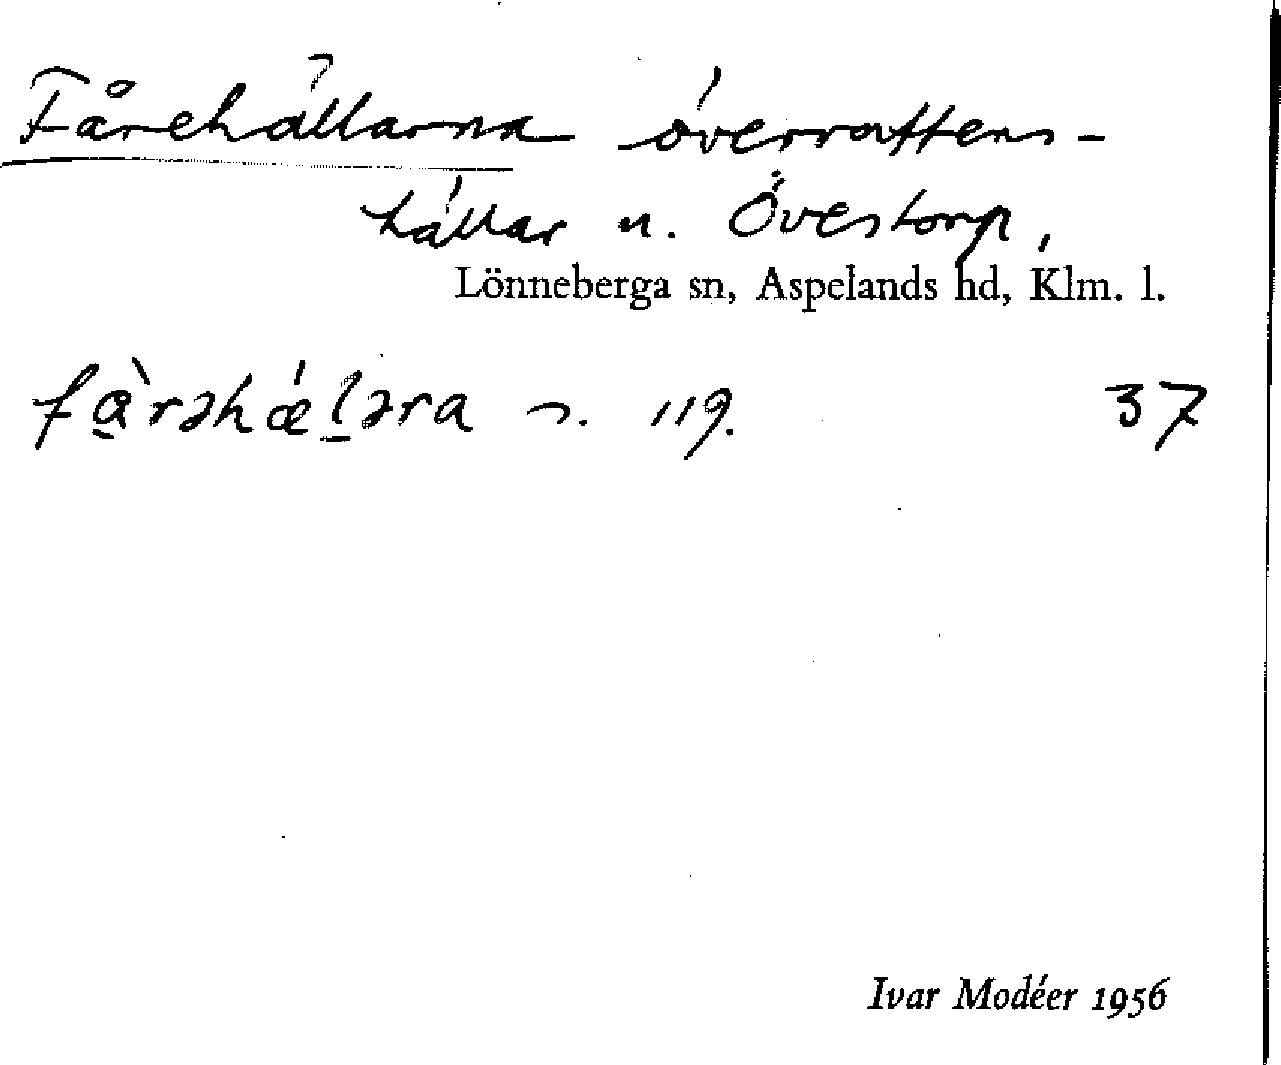 Fårehällarna övervattens-
hällar n. Övestorp,
Lönneberga sn, Aspelands hd, Klm. l.
fà̱rəhǽḻəra s. 119. 37
Ivar Modéer 1956